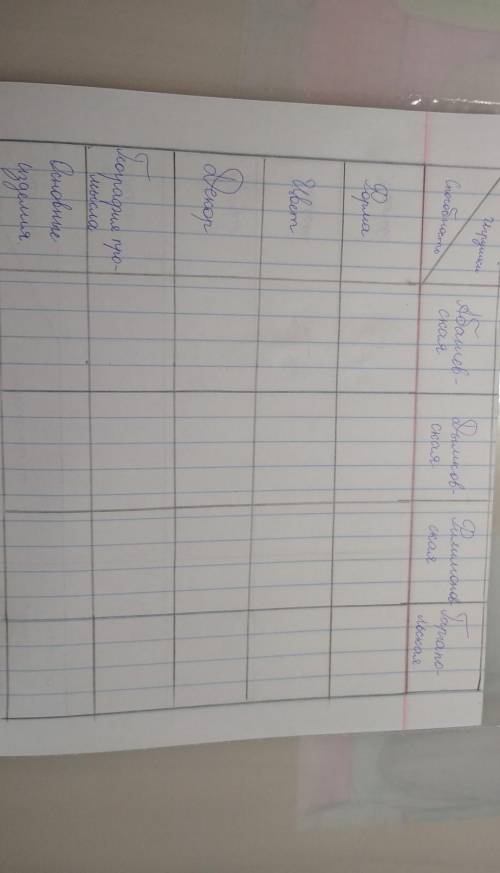 Игрушки
Способность
Абашев-
ская
Дымков-
ская
Филимонов
ская
Каргопо-
льская
Форма
Цвет
Декор
География про-
мысла
Основные
изделия